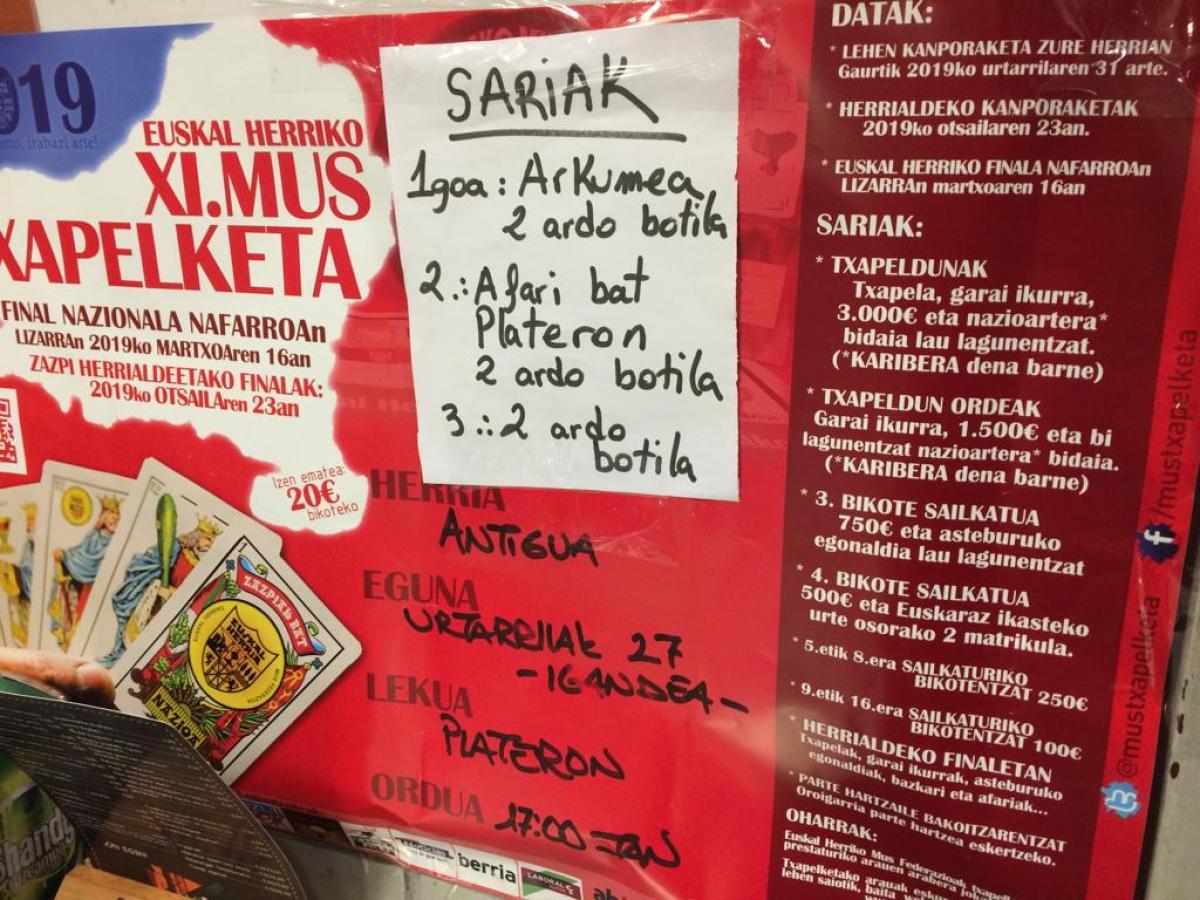 19
irabazi arte!
EUSKAL HERRIKO
XI.MUS
TXAPELKETA
FINAL NAZIONALA NAFARROAn
LIZARRAn 2019ko MARTXOAren 16an
ZAZPI HERRIALDEETAKO FINALAK:
2019ko OTSAILAren 23an
Izen ematea:
20€
bikoteko
ZAZPIAK BAT
SARIAK
1goa: Arkumea,
2 ardo botila
2.: Afari bat
Plateron
2 ardo botila
3.: 2 ardo
botila
HERRIA
ANTIGUA
EGUNA
URTARRILAK 27
-IGANDEA-
LEKUA
PLATERON
ORDUA 17:00-TAN
berria
LABORAL
Shandy
DATAK:
* LEHEN KANPORAKETA ZURE HERRIAN
Gaurtik 2019ko urtarrilaren 31 arte.
* HERRIALDEKO KANPORAKETAK
2019ko otsailaren 23an.
* EUSKAL HERRIKO FINALA NAFARROAn
LIZARRAn martxoaren 16an
SARIAK:
* TXAPELDUNAK
Txapela, garai ikurra,
3.000€ eta nazioartera*
bidaia lau lagunentzat.
(*KARIBERA dena barne)
* TXAPELDUN ORDEAK
Garai ikurra, 1.500€ eta bi
lagunentzat nazioartera* bidaia.
(*KARIBERA dena barne)
* 3. BIKOTE SAILKATUA
750€ eta asteburuko
egonaldia lau lagunentzat
* 4. BIKOTE SAILKATUA
500€ eta Euskaraz ikasteko
urte osorako 2 matrikula.
* 5.etik 8.era SAILKATURIKO
BIKOTENTZAT 250€
* 9.etik 16.era SAILKATURIKO
BIKOTENTZAT 100€
* HERRIALDEKO FINALETAN
Txapelak, garai ikurrak, asteburuko
egonaldiak, bazkari eta afariak...
* PARTE HARTZAILE BAKOITZARENTZAT
Oroigarria parte hartzea eskertzeko.
OHARRAK:
Euskal Herriko Mus Federazioak
prestaturiko arauen arabera
Txapelketako arauak
lehen saiotik, baita
f/mustxapelketa
@mustxapelketa